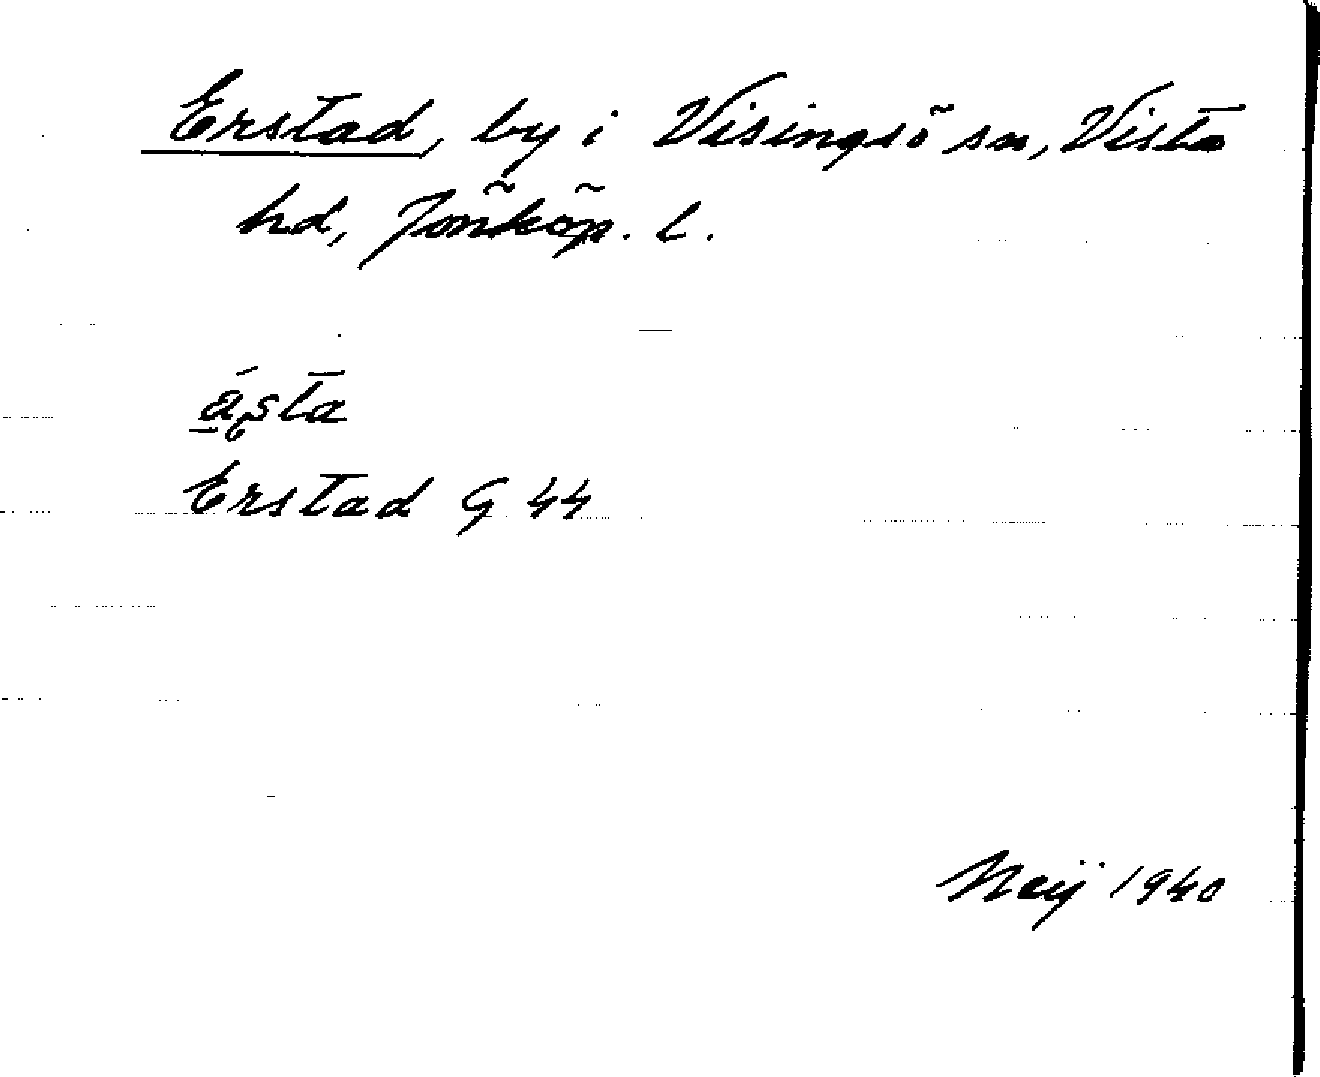 Erstad, by i Visingsö sn, Vista
hd, Jönköp. l.
á̱şta
Erstad G 44
Neij 1940